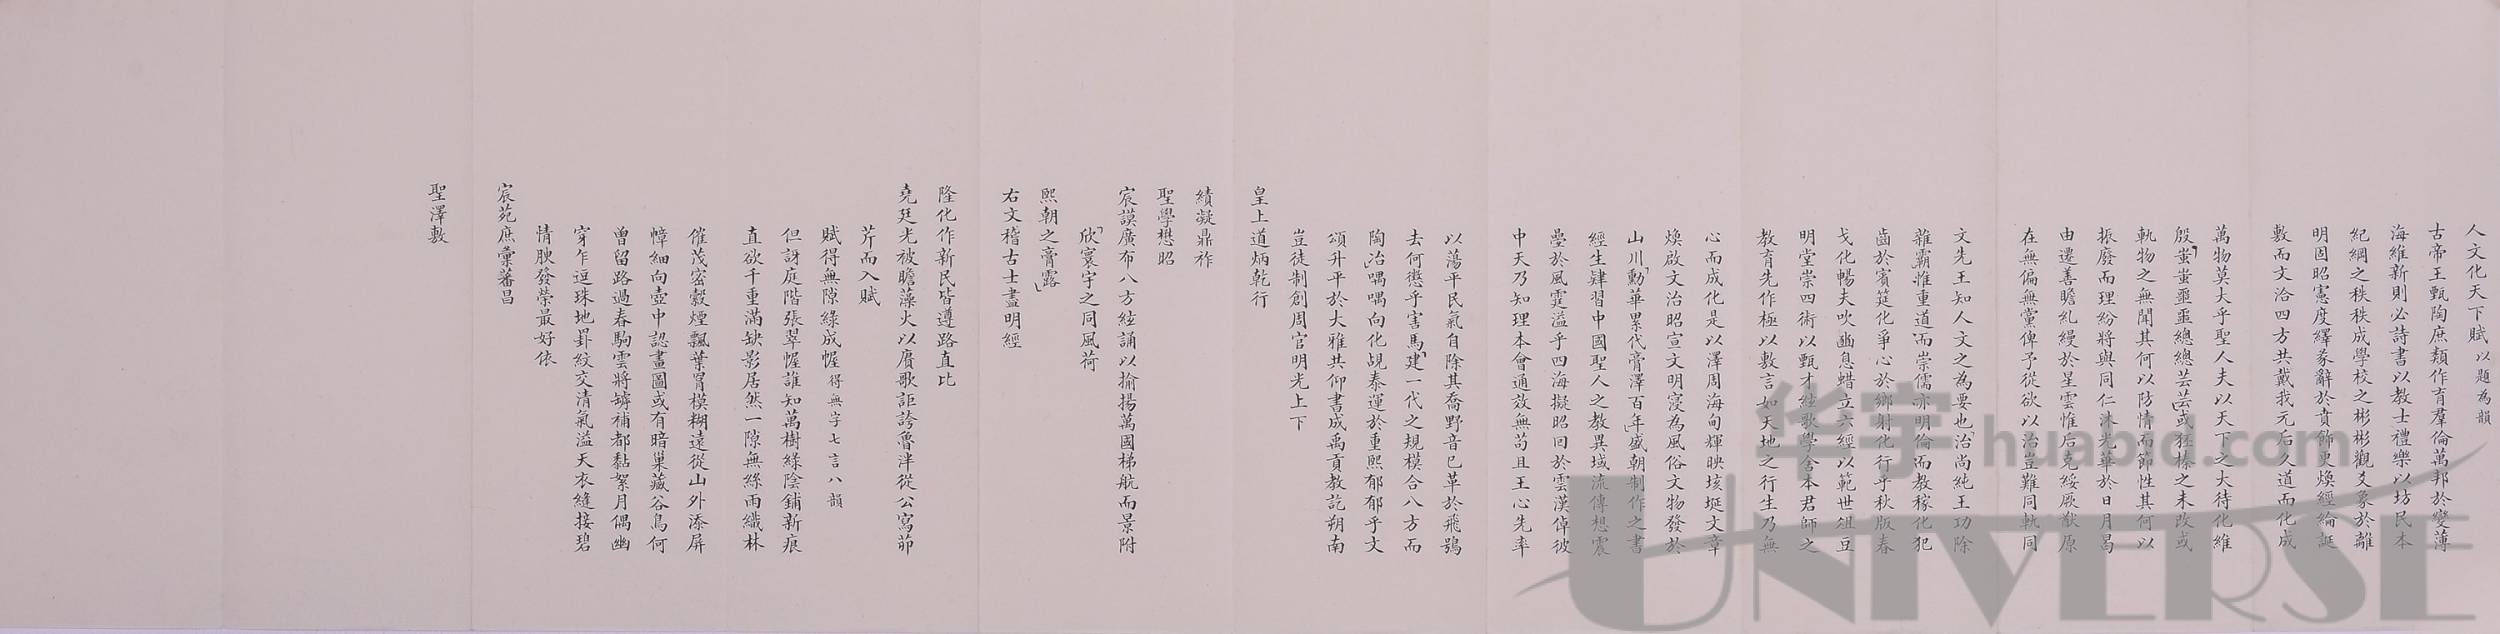 人文化天下賦以題為韻
古帝王甄陶庶類作育羣倫萬邦於變薄
海維新則必詩書以教士禮樂以坊民本
紀綱之秩秩成學校之彬彬觀爻象於離
明固昭憲度繹彖辭於賁飾更煥經綸誕
敷而文洽四方共戴我元后久道而化成
萬物莫大乎聖人夫以天下之大待化維
殷蚩蚩噩噩總總芸芸或狉榛之未改或
軌物之無聞其何以防情而節性其何以
振廢而理紛將與同仁沐光華於日月曷
由遷善瞻糺縵於星雲惟后克綏厥猷原
在無偏無黨俾予從欲以治豈難同軌同
文先王知人文之為要也治尚純王功除
雜霸惟重道而崇儒亦明倫而教稼化犯
齒於賓筵化爭心於鄉射化行乎秋版春
戈化暢夫吹豳息蜡立六經以範世俎豆
明堂崇四術以甄才絃歌學舍本君師之
教育先作極以敷言如天地之行生乃無
心而成化是以澤周海甸輝映垓埏文章
煥啟文治昭宣文明寖為風俗文物發於
山川勳華累代膏澤百年盛朝制作之書
經生肄習中國聖人之教異域流傳想震
疊於風霆溢乎四海擬昭回於雲漢倬彼
中天乃知理本會通效無苟且王心先率
以蕩平民氣自除其喬野音已革於飛鴞
去何懲乎害馬建一代之規模合八方而
陶冶喁喁向化覘泰運於重熙郁郁乎文
頌升平於大雅共仰書成禹貢教訖朔南
豈徒制創周官明光上下
皇上道炳乾行
績凝鼎祚
聖學懋昭
宸謨廣布八方絃誦以揄揚萬國梯航而景附
欣寰宇之同風荷
熙朝之膏露
右文稽古士盡明經
隆化作新民皆遵路直比
堯廷光被瞻藻火以賡歌詎誇魯泮從公寫茆
芹而入賦
賦得無隙綠成幄得無字七言八韻
但訝庭階張翠幄誰知萬樹綠陰鋪新痕
直欲千重滿缺影居然一隙無絲雨織林
催茂密縠煙飄葉罥模糊遠從山外添屏
幛細向壺中認畫圖或有暗巢藏谷鳥何
曾留路過春駒雲將罅補都黏絮月偶幽
穿乍逗珠地罫紋交清氣溢天衣縫接碧
情腴發榮最好依
宸苑庶彙蕃昌
聖澤敷
华宇 huabid.com
UNIVERSE